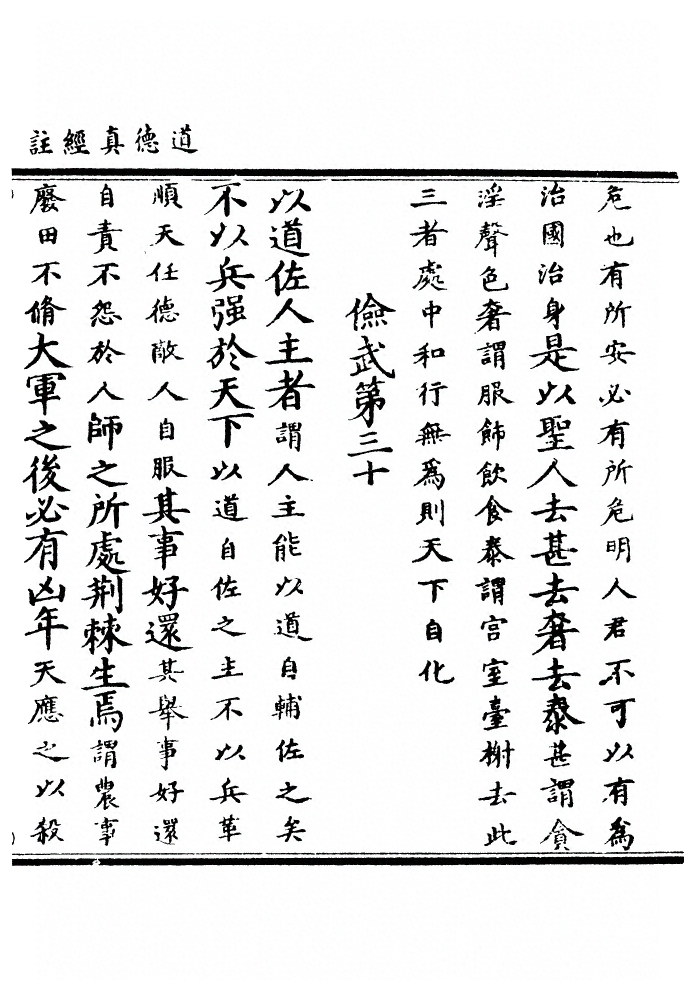 道德真經註
危也有所安必有所危明人君不可以有為
治國治身是以聖人去甚去奢去泰甚謂貪
淫聲色奢謂服飾飲食泰謂宮室臺榭去此
三者處中和行無為則天下自化
儉武第三十
以道佐人主者謂人主能以道自輔佐之矣
不以兵强於天下以道自佐之主不以兵革
順天任德敵人自服其事好還其舉事好還
自責不怨於人師之所處荆棘生焉謂農事
廢田不脩大軍之後必有凶年天應之以殺